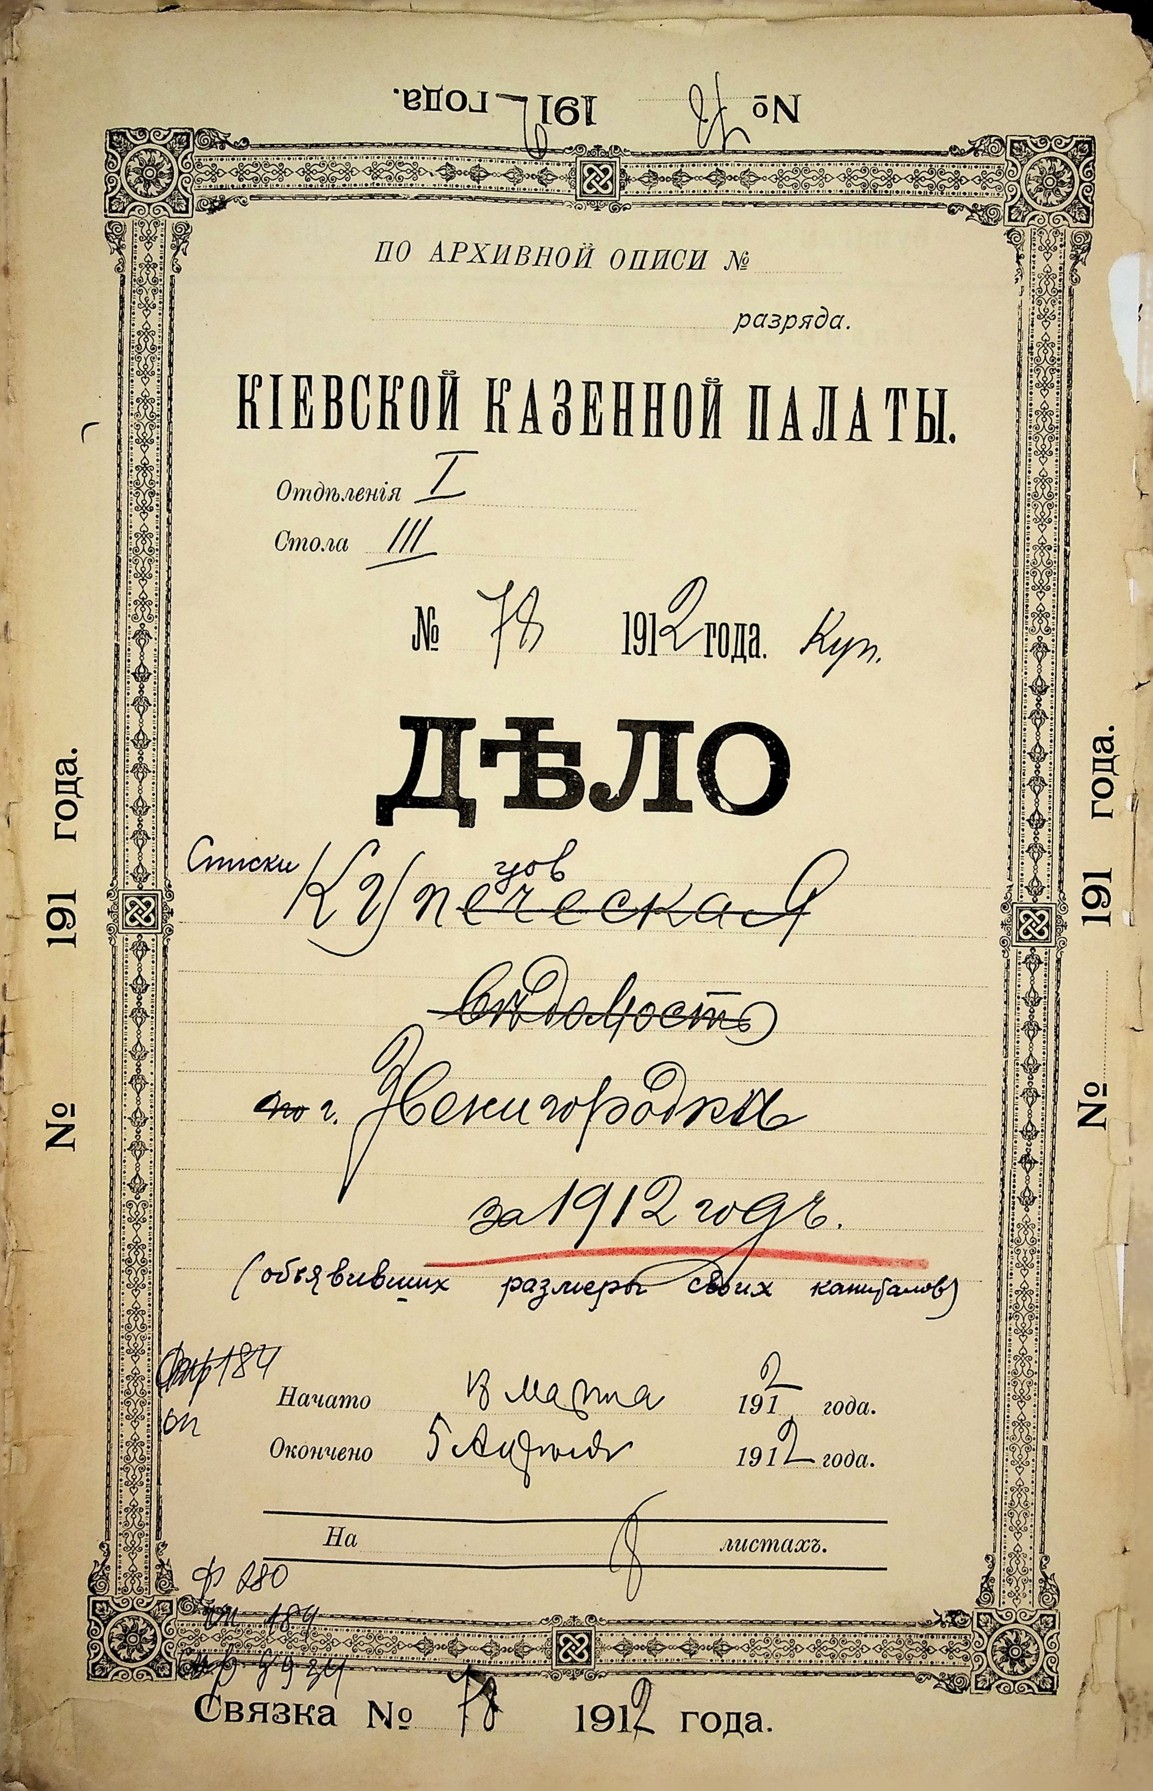 № 78 1912 года.
ПО АРХИВНОЙ ОПИСИ №
разряда.
КІЕВСКОЙ КАЗЕННОЙ ПАЛАТЫ.
Отдѣленія I
Стола III
№ 78 1912 года. Куп.
ДѢЛО
Списки Купеческая цов
вѣдомость
по г. Звенигородки
за 1912 годъ.
(объявивших размеры своих капиталов)
184
оп
Начато 13 марта 1912 года.
Окончено 5 Апреля 1912 года.
На 8 листахъ.
ф 280
оп 184
Связка № 78 1912 года.
№ 191 года.
№ 191 года.